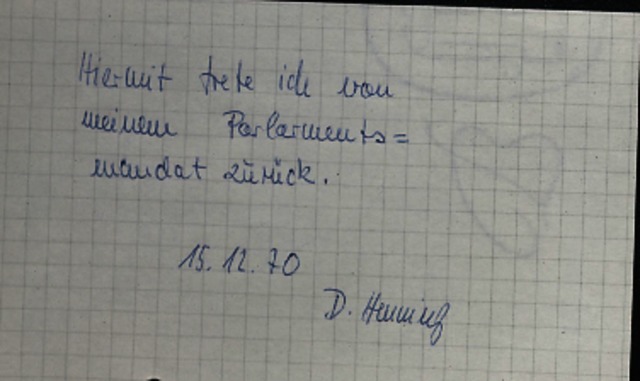 Hiermit trete ich von
meinem Parlaments=
mandat zurück.
15.12.70
D. Henning